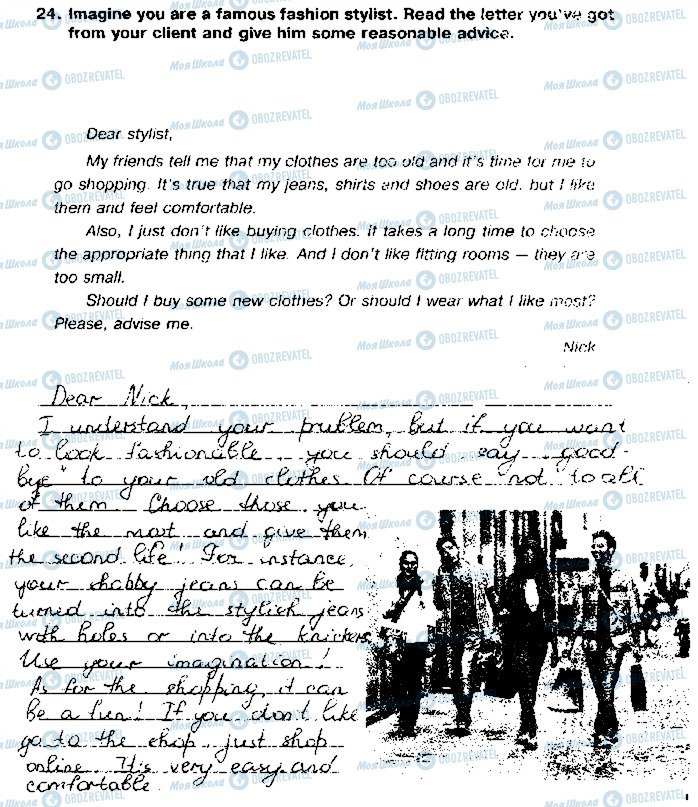 24. Imagine you are a famous fashion stylist. Read the letter you've got
from your client and give him some reasonable advice.
Dear stylist,
My friends tell me that my clothes are too old and it's time for me to
go shopping. It's true that my jeans, shirts and shoes are old, but I like
them and feel comfortable.
Also, I just don't like buying clothes. It takes a long time to choose
the appropriate thing that I like. And I don't like fitting rooms — they are
too small.
Should I buy some new clothes? Or should I wear what I like most?
Please, advise me.
Nick
Dear Nick,
I understand your problem, but if you want
to look fashionable, you should say „good-
bye" to your old clothes. Of course not to all
of them. Choose those you
like the most and give them
the second life! For instance,
your shabby jeans can be
turned into the stylish jeans
with holes or into the knickers.
Use your imagination!
As for the shopping, it can
be a fun! If you don't like
go to the shop, just shop
online. It's very easy and
comfortable.
Моя Школа OBOZREVATEL